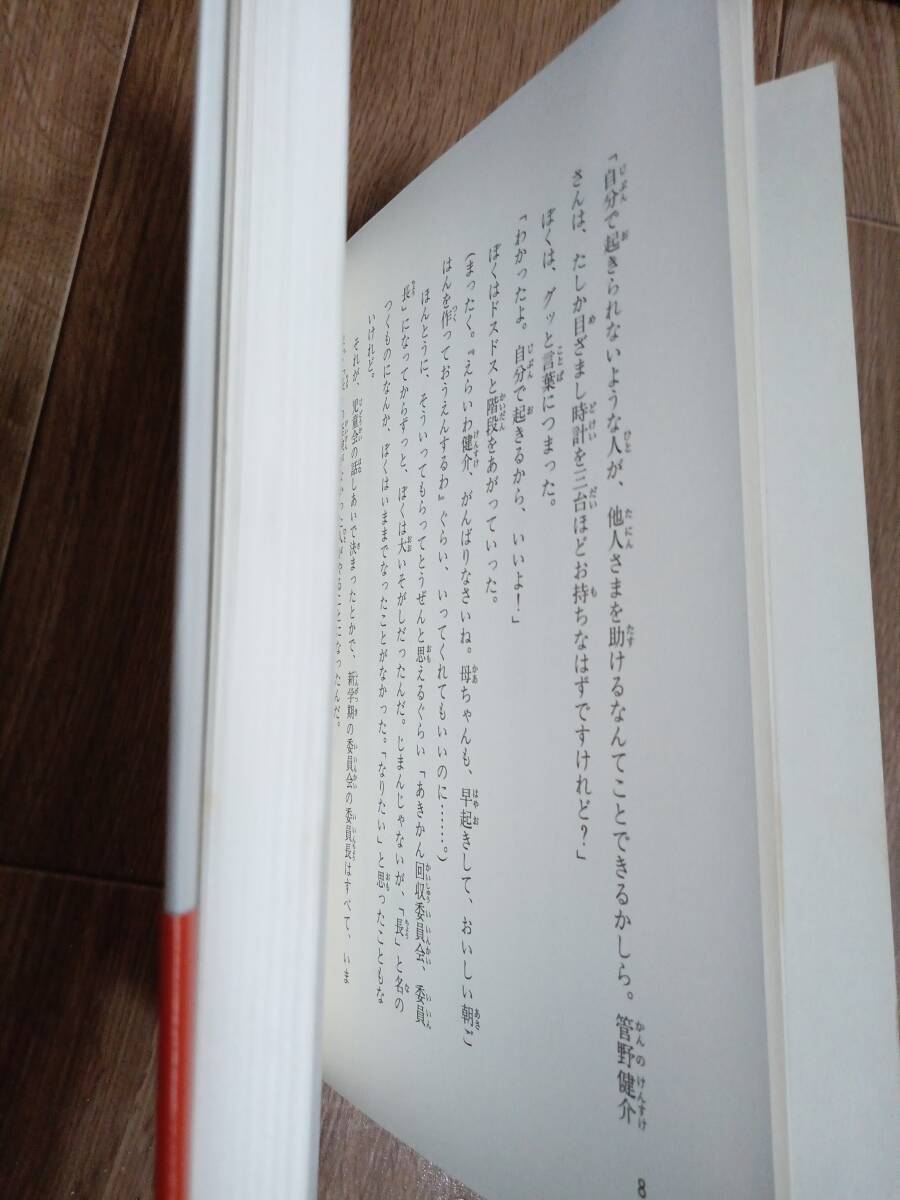 「自分で起きられないような人が、他人さまを助けるなんてことできるかしら。管野健介
さんは、たしか目ざまし時計を三台ほどお持ちなはずですけれど？」
ぼくは、グッと言葉につまった。
「わかったよ。自分で起きるから、いいよ！」
ぼくはドスドスと階段をあがっていった。
(まったく。『えらいわ健介、がんばりなさいね。母ちゃんも、早起きして、おいしい朝ご
はんを作っておうえんするわ』ぐらい、いってくれてもいいのに……。)
ほんとうに、そういってもらってとうぜんと思えるぐらい「あきかん回収委員会、委員
長」になってからずっと、ぼくは大いそがしだったんだ。じまんじゃないが、「長」と名の
つくものになんか、ぼくはいままでなったことがなかった。「なりたい」と思ったこともな
いけれど。
それが、児童会の話しあいで決まったとかで、新学期の委員会の委員長はすべて、いま
人がやることになったんだ。
8